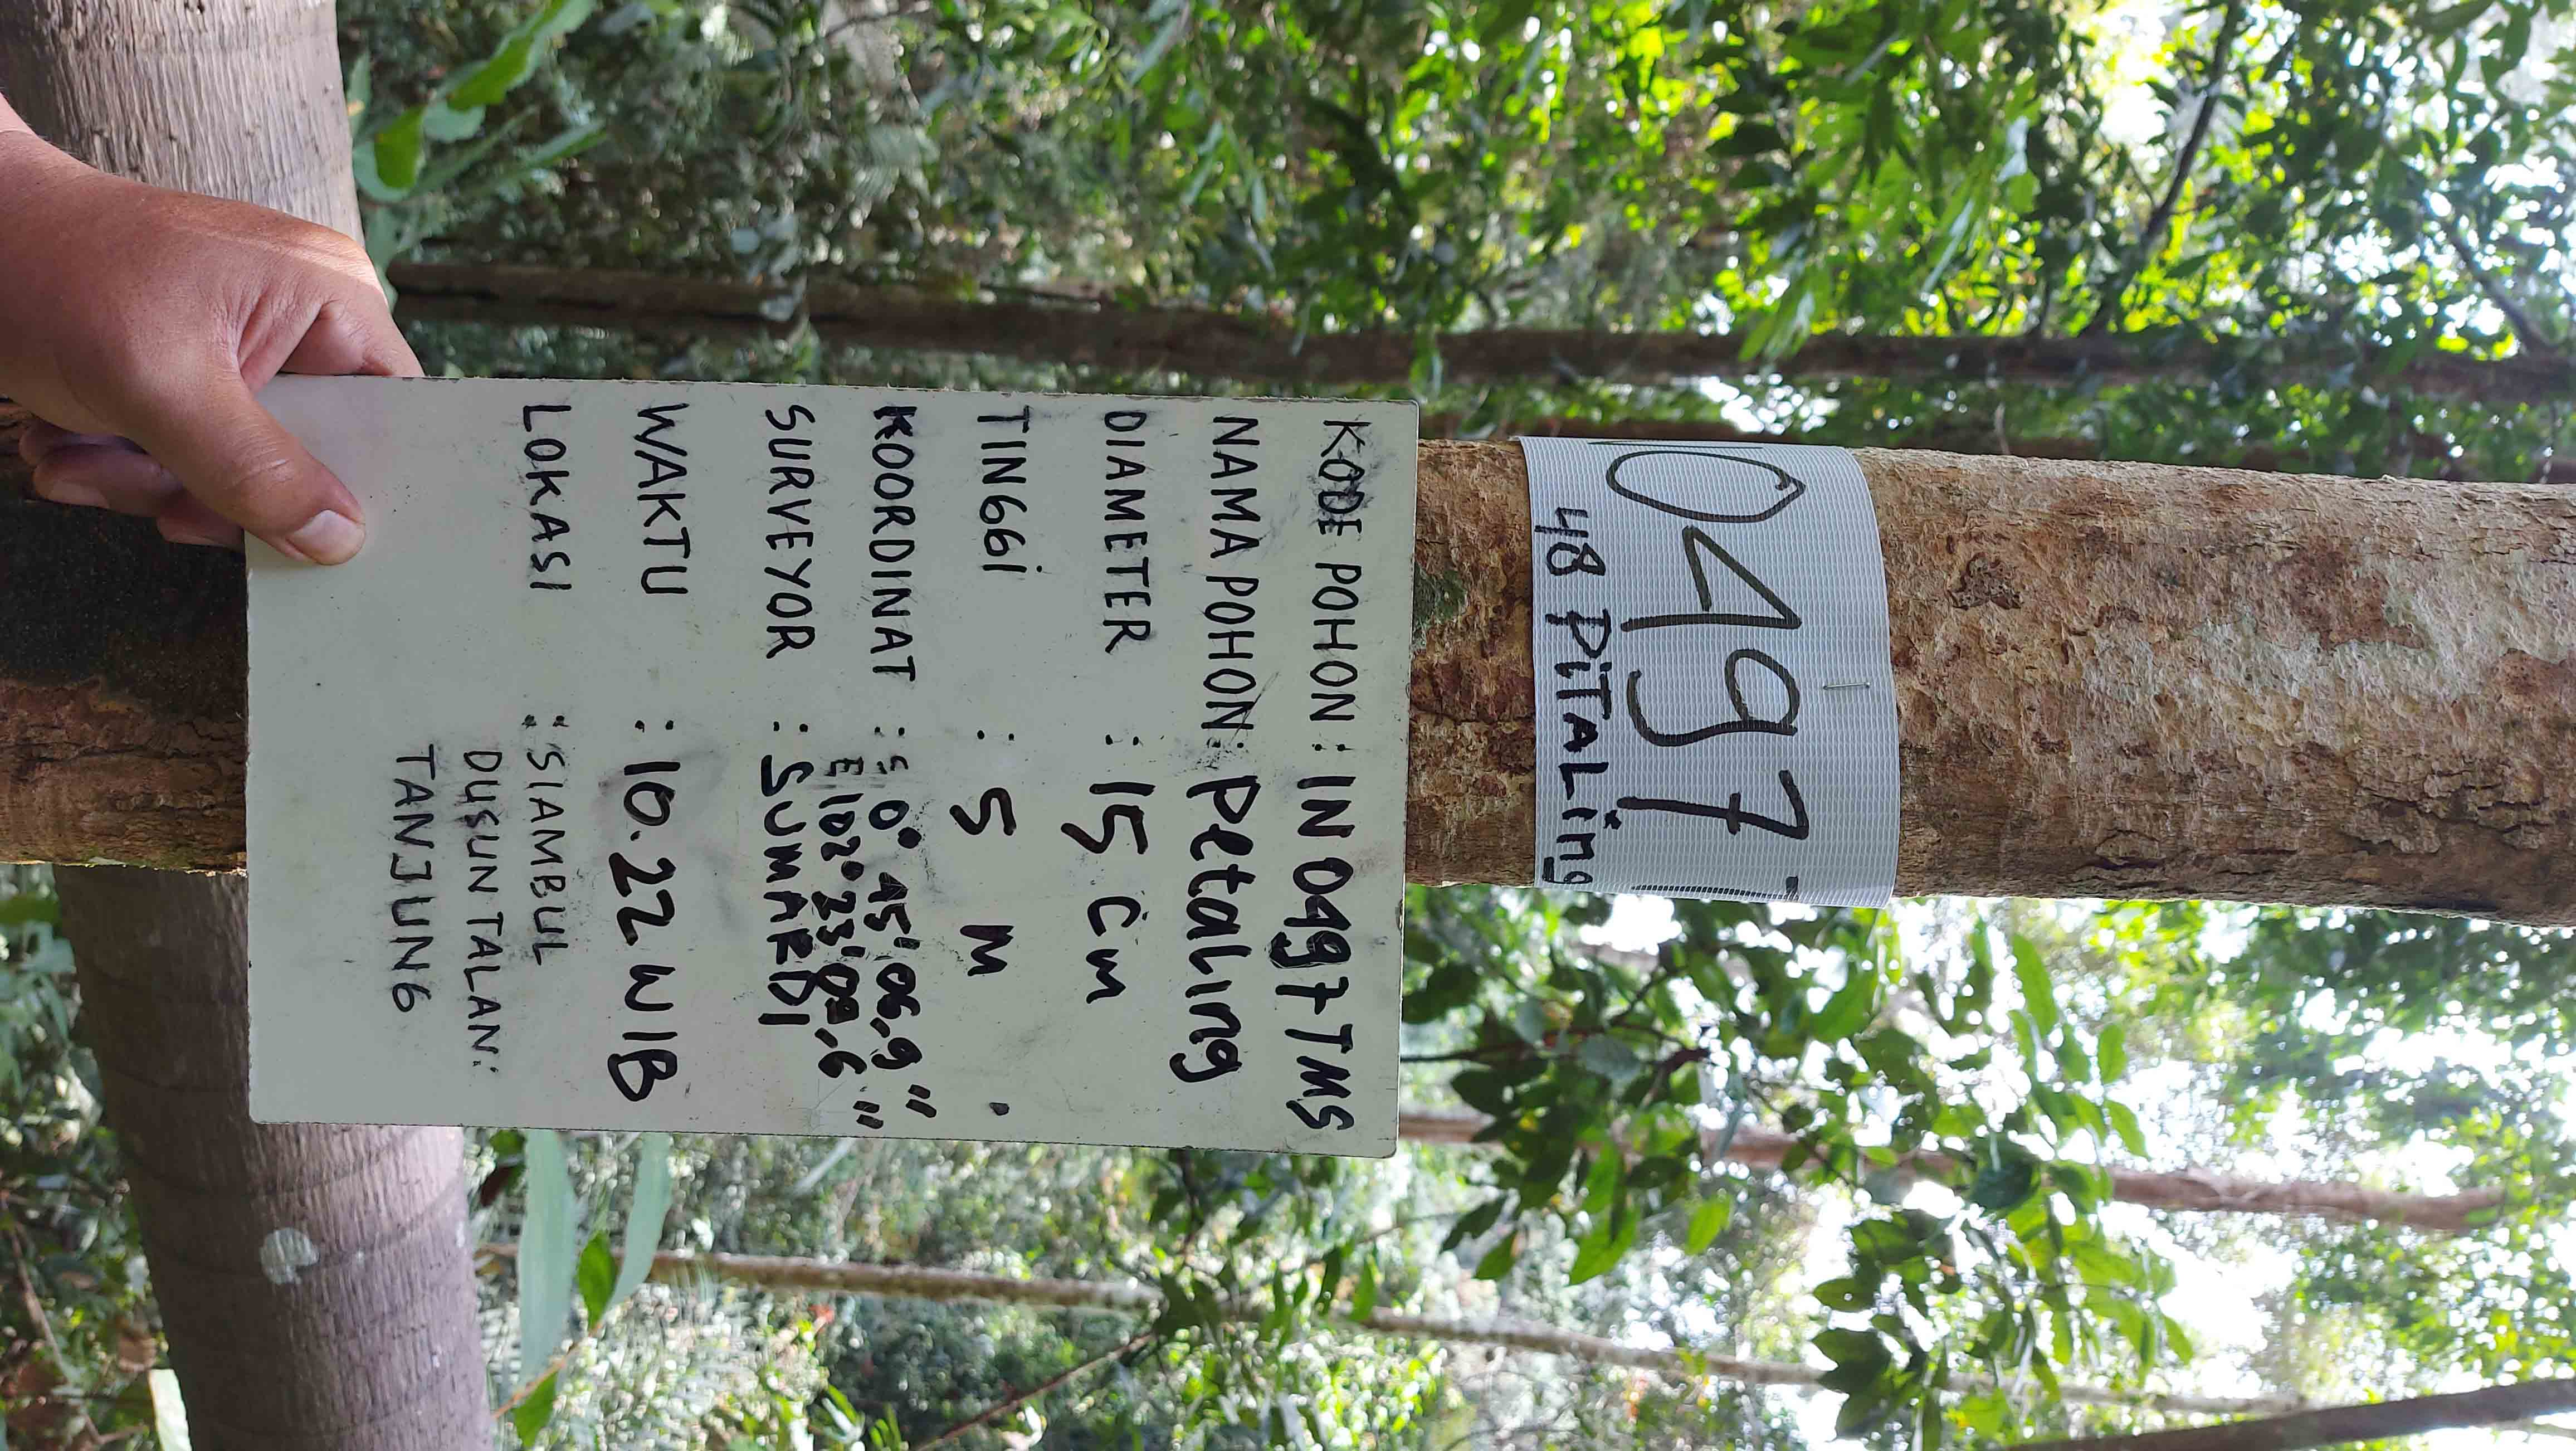 0497T
48 PiTALing
KODE POHON : IN 0497 TMS
NAMA POHON : Petaling
DIAMETER : 15 Cm
TINGGi : 5 M
KOORDINAT : S 0° 45' 06,9"
E 102° 23' 09,6"
SURVEYOR : SUMARDI
WAKTU : 10.22 WIB
LOKASI : SIAMBUL
DUSUN TALAN:
TANJUNG